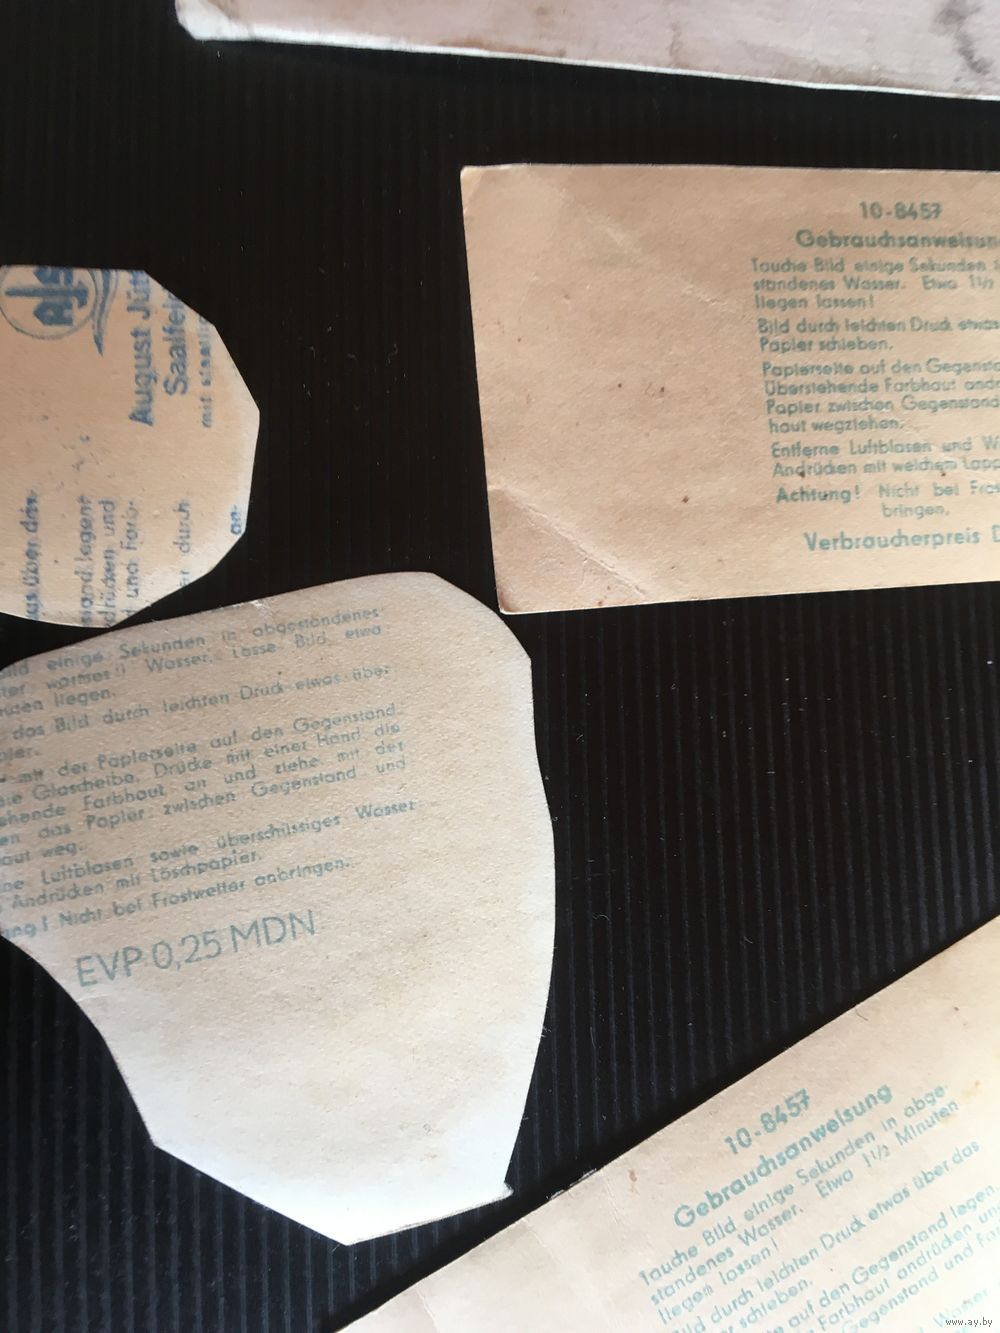 AJS
August Jütt
Saalfel
mit staatlic
aus über das
stand legen!
drücken und
und Farb-
er durch
an-
10-8457
Gebrauchsanweisun
Tauche Bild einige Sekunden
standenes Wasser. Etwa 1½
liegen lassen!
Bild durch leichten Druck etwas
Papier schieben.
Papierseite auf den Gegensta
Überstehende Farbhaut andr
Papier zwischen Gegenstand
haut wegziehen.
Entferne Luftblasen und W
Andrücken mit weichem Lapp
Achtung! Nicht bei Fros
bringen.
Verbraucherpreis D
Bild einige Sekunden in abgestandenes
warmes!) Wasser. Lasse Bild etwa
liegen.
das Bild durch leichten Druck etwas über
pier.
mit der Papierseite auf den Gegenstand
Glasscheibe. Drücke mit einer Hand die
ehende Farbhaut an und ziehe mit der
en das Papier zwischen Gegenstand und
aut weg.
ne Luftblasen sowie überschüssiges Wasser
Andrücken mit Löschpapier.
ung! Nicht bei Frostwetter anbringen.
EVP 0,25 MDN
10-8457
Gebrauchsanweisung
Tauche Bild einige Sekunden in abge-
standenes Wasser. Etwa 1½ Minuten
liegen lassen!
Bild durch leichten Druck etwas über das
er schieben.
e auf den Gegenstand legen.
Farbhaut andrücken un
Gegenstand und Fa
Wasser
www.ay.by